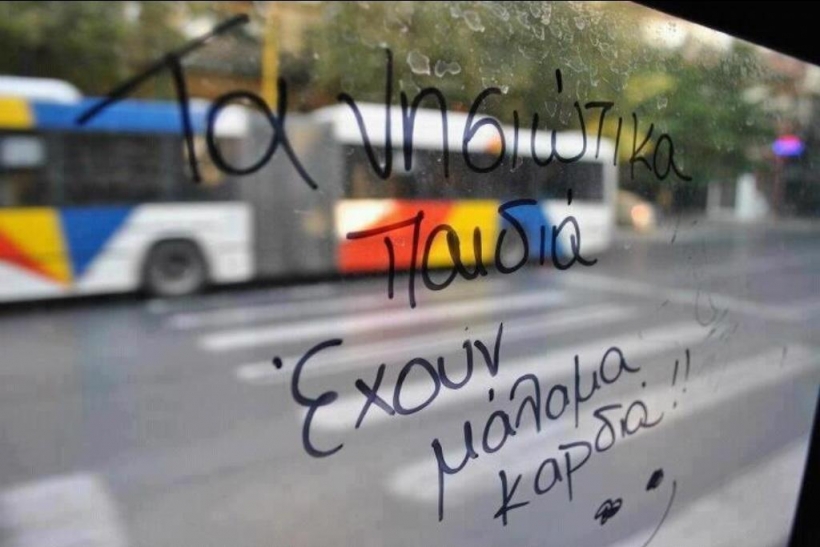 Τα νησιώτικα
παιδιά
Έχουν
μάλαμα
καρδιά!!